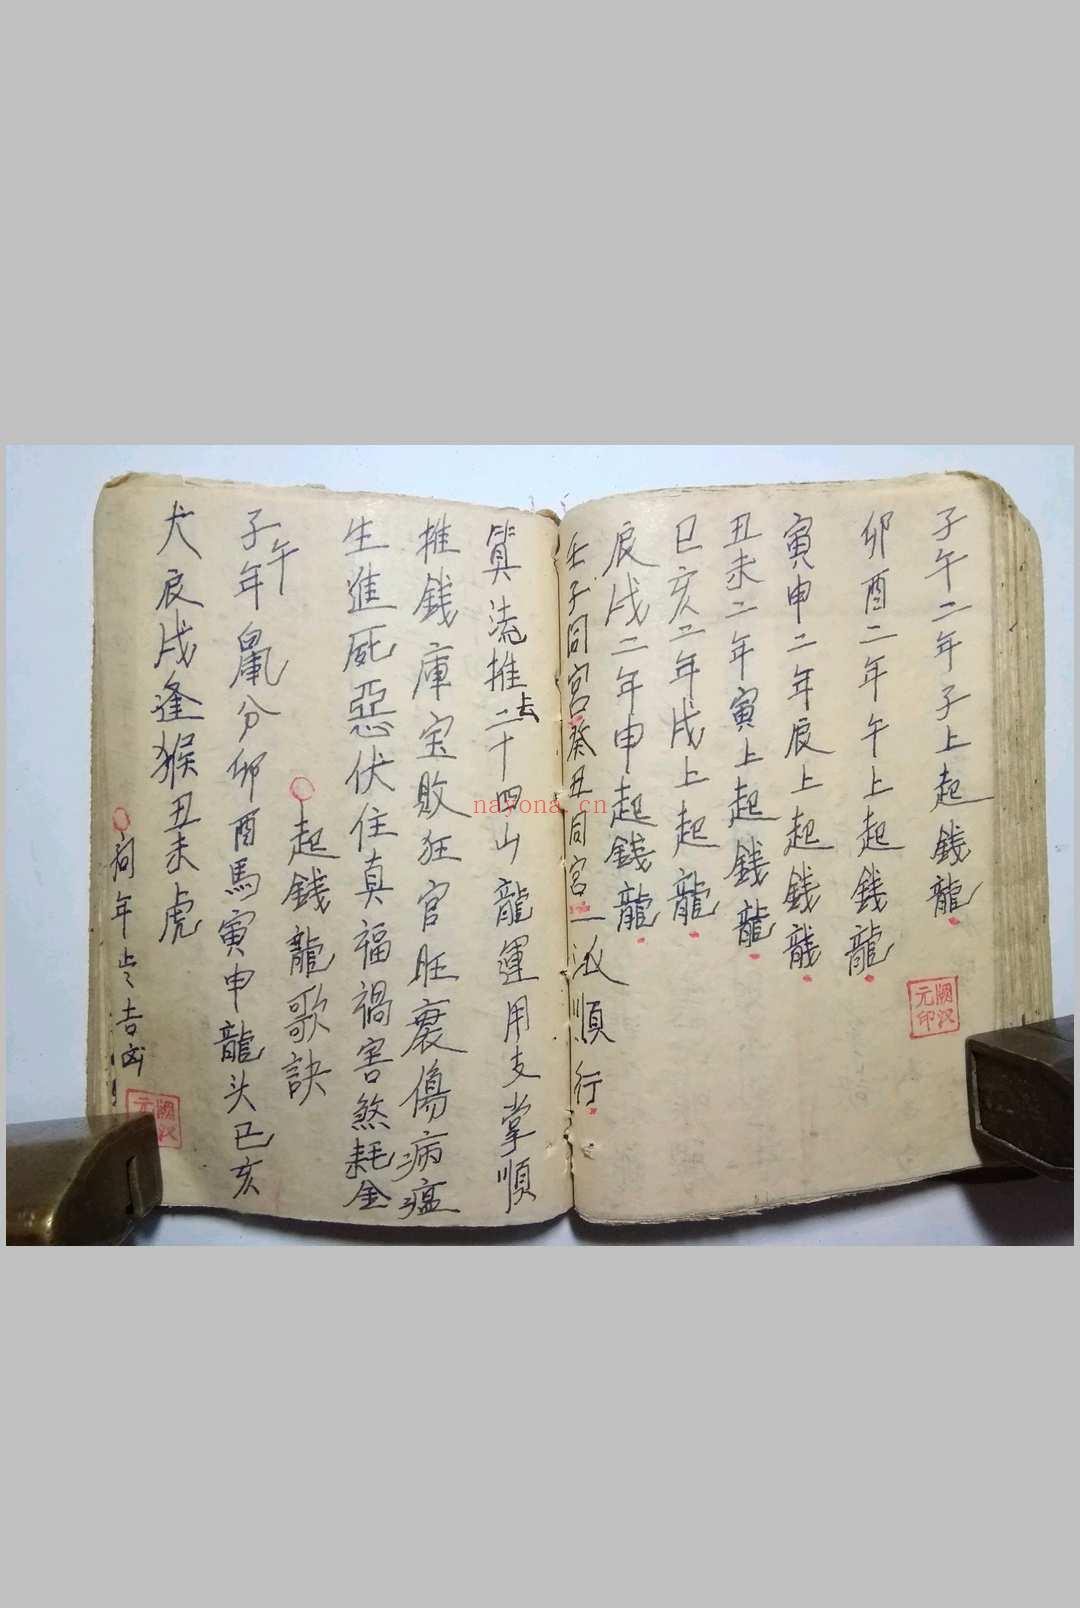 子午二年子上起錢龍
卯酉二年午上起錢龍
寅申二年辰上起錢龍
丑未二年寅上起錢龍
巳亥二年戌上起龍
辰戌二年申起錢龍
壬子同宮癸丑同宮一派順行
算流推去二十四山龍運用支掌順
推錢庫宝敗狂官旺衰傷病瘟
生進死惡伏住真福禍害煞耗金
起錢龍歌訣
子午年鼠分卯酉馬寅申龍头巳亥
犬辰戌逢猴丑未虎
年吉凶
元印
nayona.cn